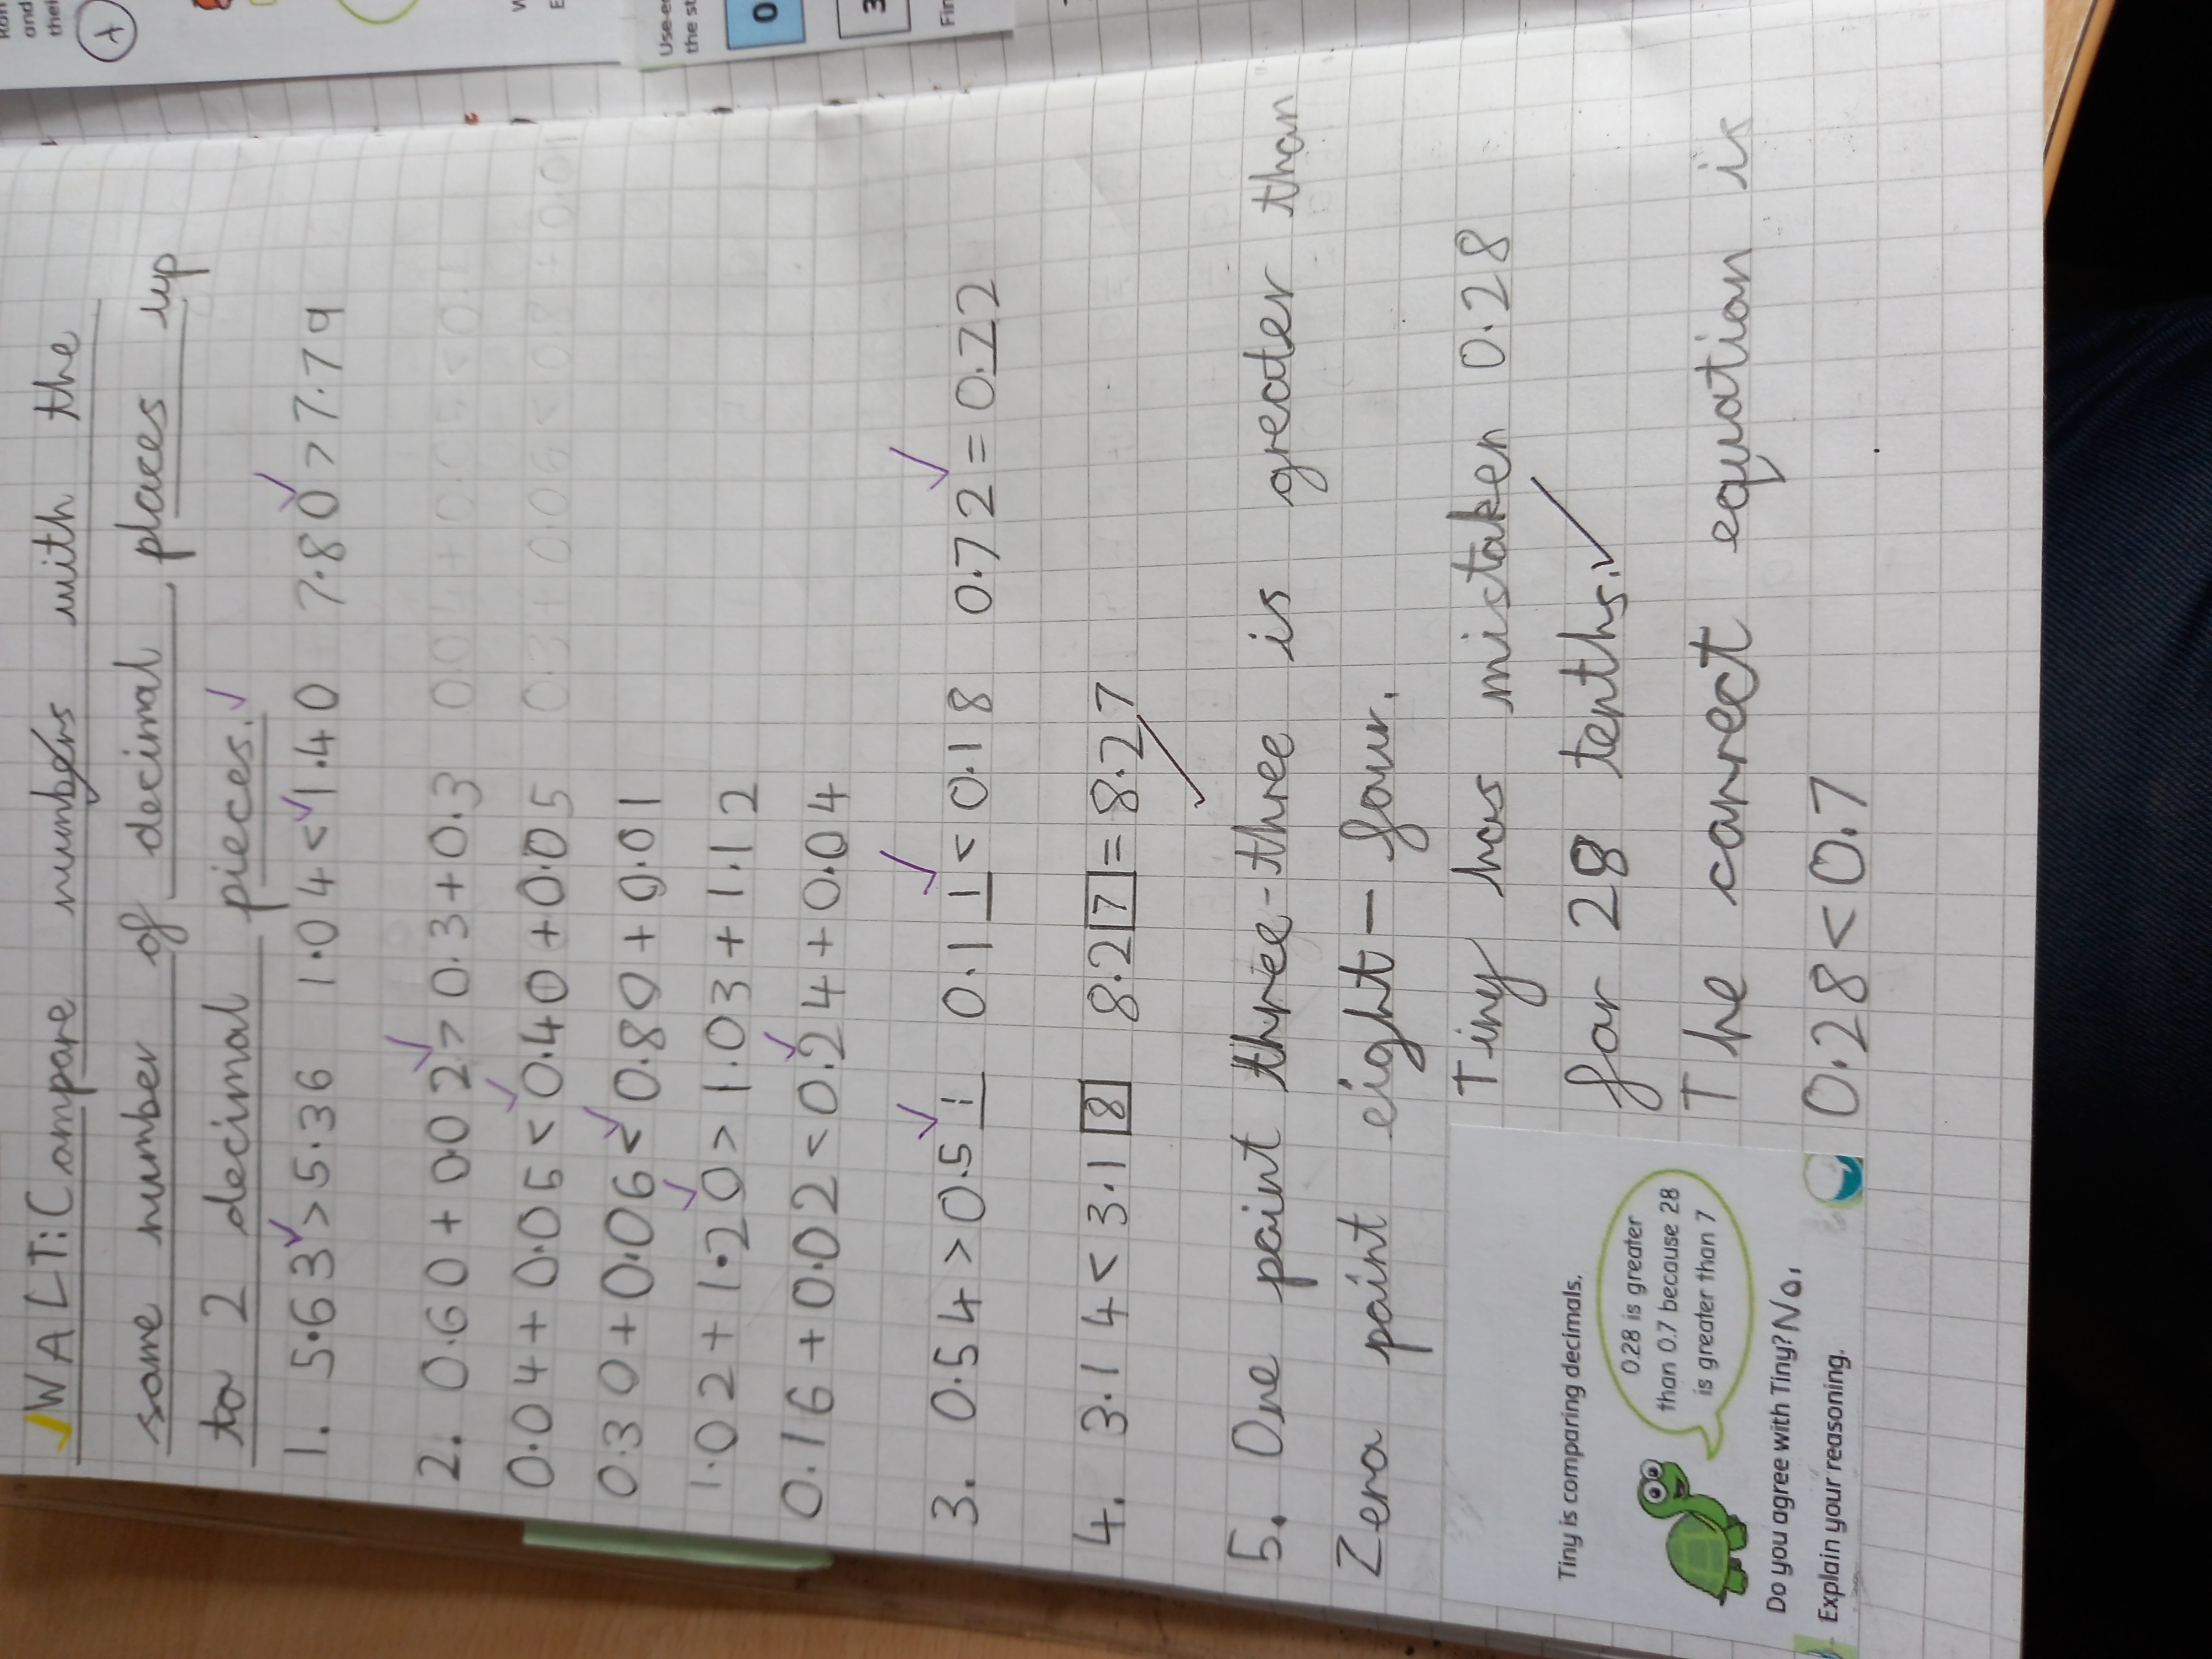 WALT: Compare numbers with the
same number of decimal places up
to 2 decimal pieces.
1. 5.63 > 5.36 1.04 < 1.40 7.80 > 7.79
2. 0.60 + 0.02 > 0.3 + 0.3
0.04 + 0.05 < 0.40 + 0.05
0.30 + 0.06 < 0.80 + 0.01
1.02 + 1.20 > 1.03 + 1.12
0.16 + 0.02 < 0.24 + 0.04
3. 0.54 > 0.51 0.11 < 0.18 0.72 = 0.72
4. 3.14 < 3.18 8.27 = 8.27
5. One point three-three is greater than
Zero point eight-four.
Tiny is comparing decimals.
0.28 is greater
than 0.7 because 28
is greater than 7
Do you agree with Tiny? No.
Explain your reasoning.
Tiny has mistaken 0.28
for 28 tenths.
The correct equation is
0.28 < 0.7
and
A
Use
the
0
3